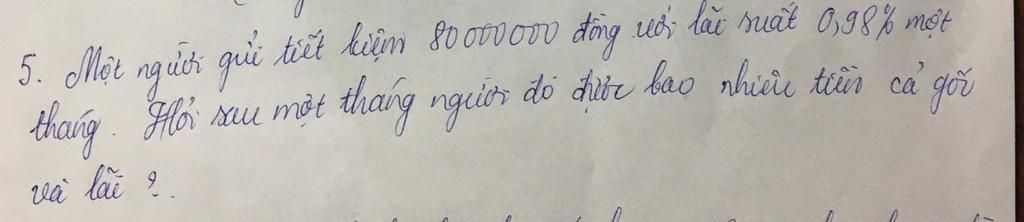 5. Một người gửi tiết kiệm 80000000 đồng với lãi suất 0,98% một
tháng. Hỏi sau một tháng người đó được bao nhiêu tiền cả gốc
và lãi ?.